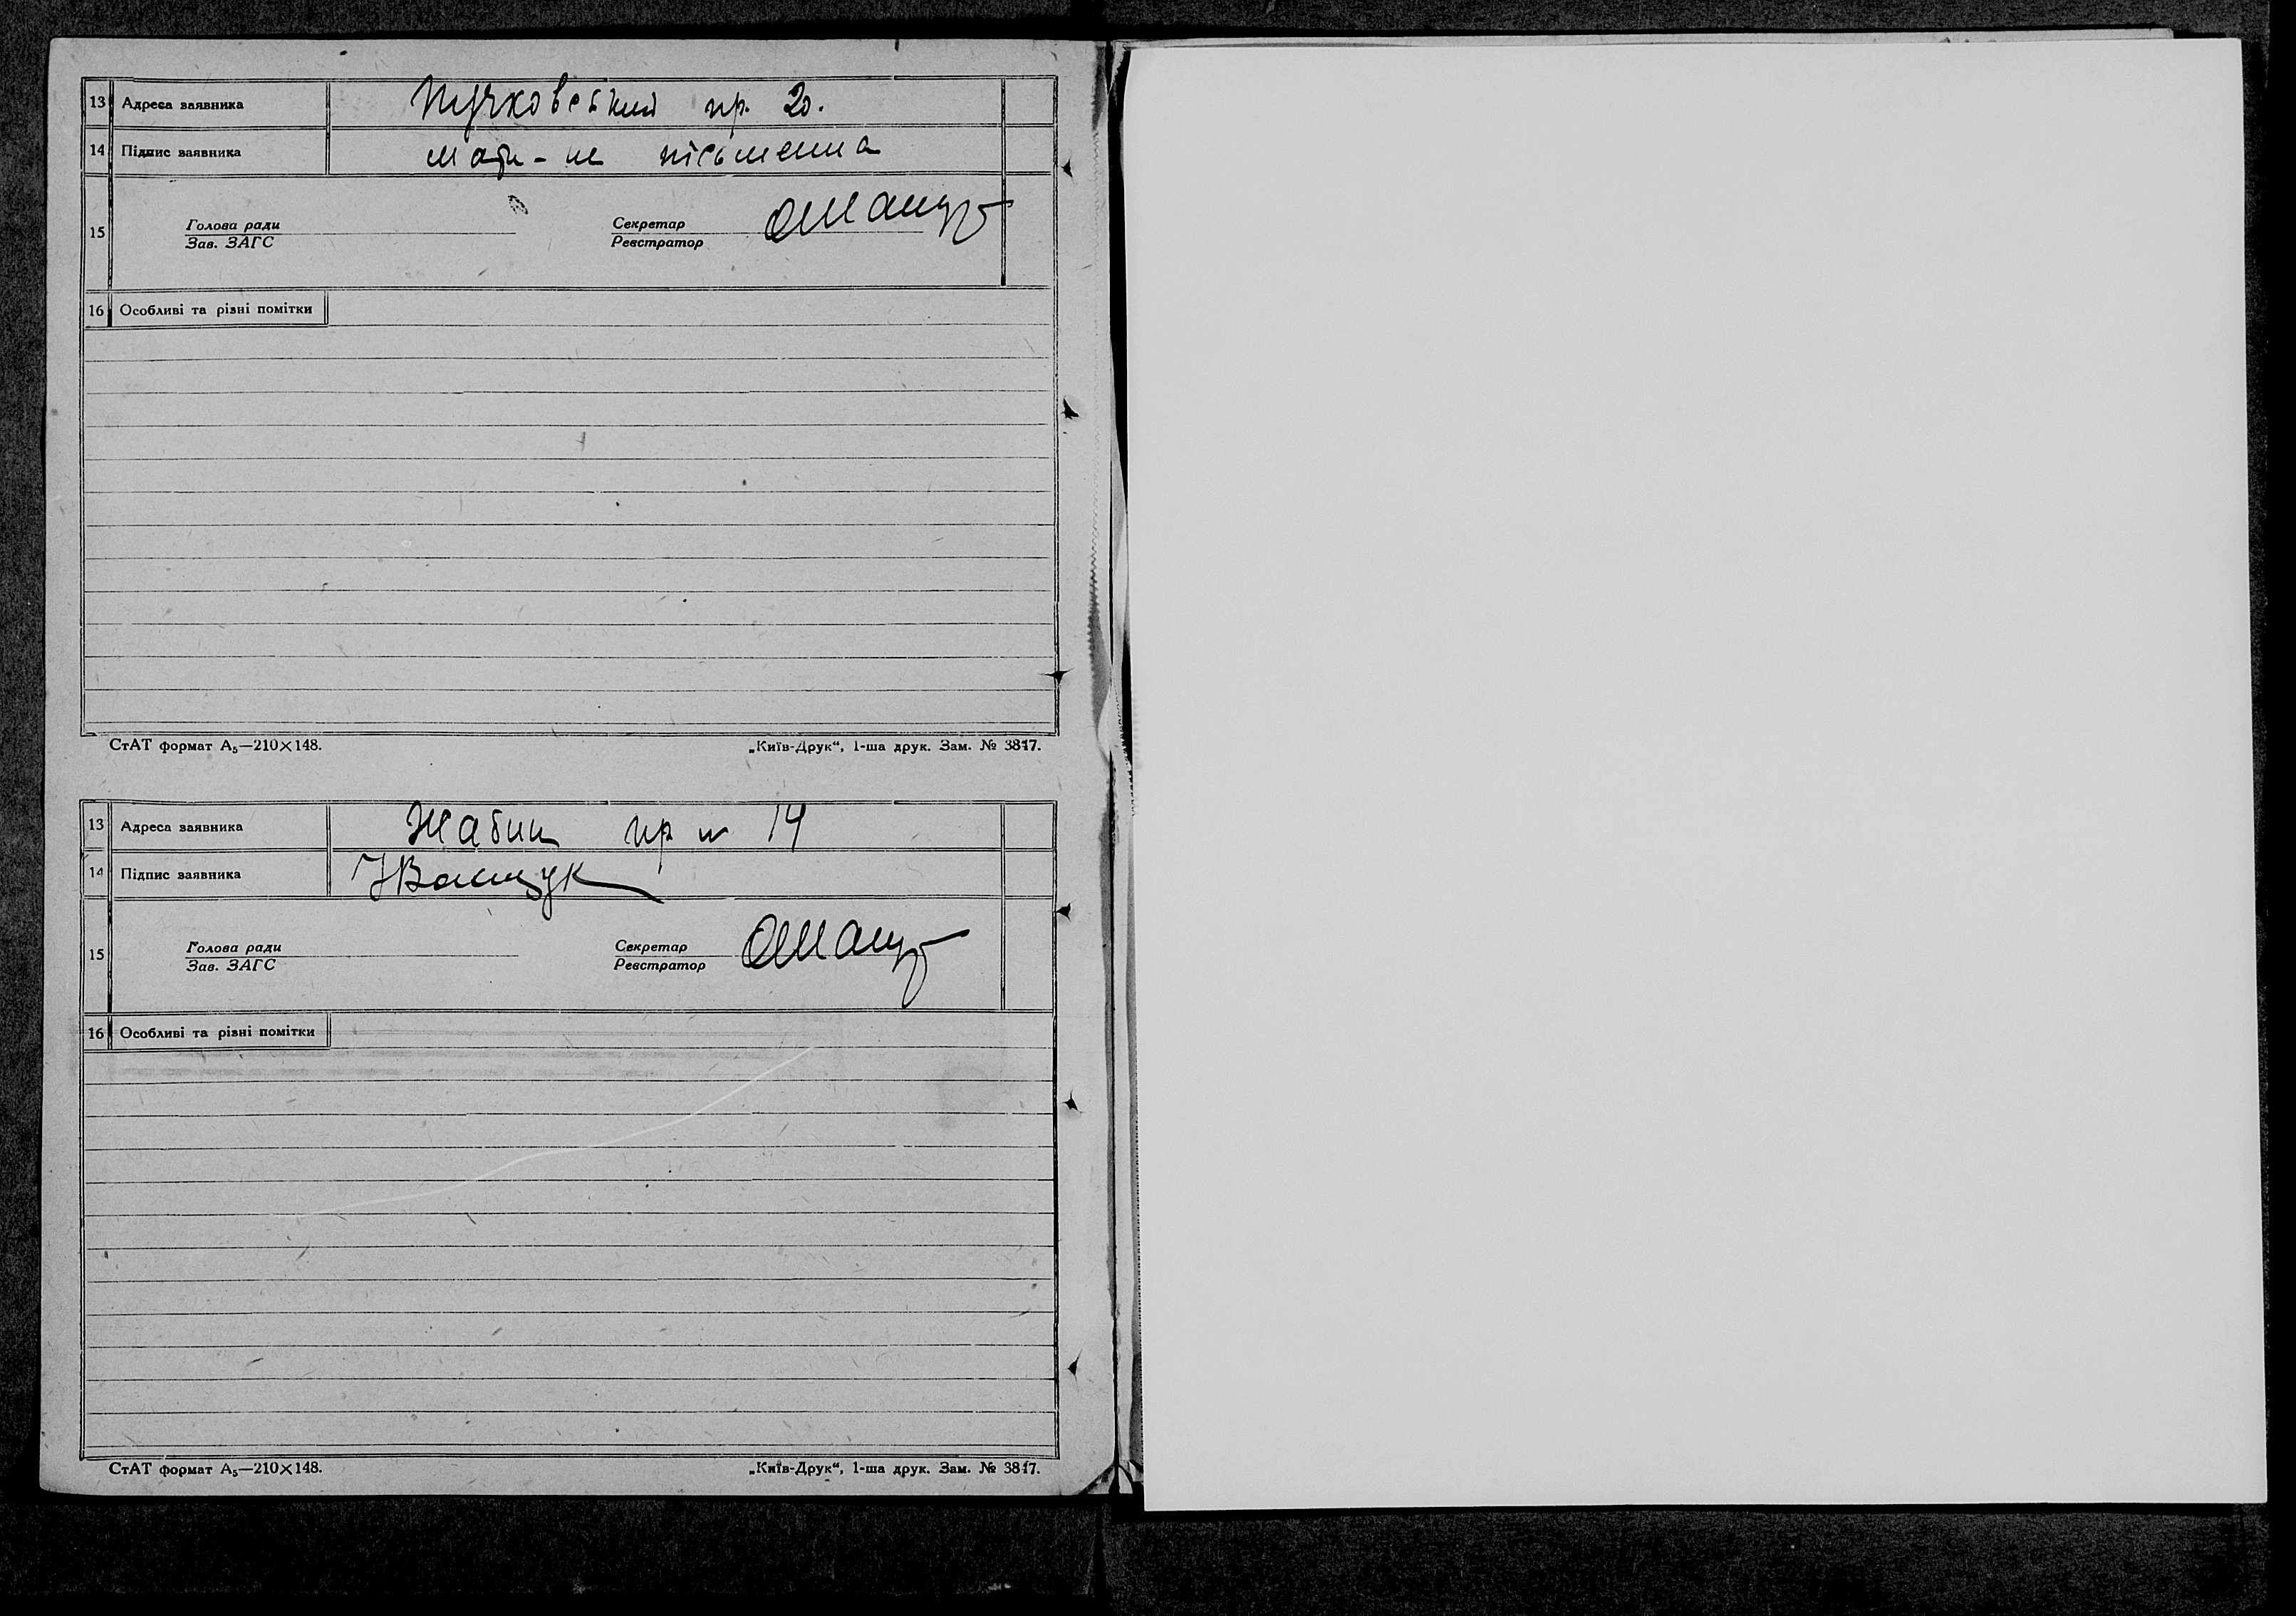 13 Адреса заявника Пучковський пр. 20.
14 Підпис заявника мати - не письменна
15 Голова ради Секретар
Зав. ЗАГС Реєстратор
16 Особливі та різні помітки
СтАТ формат А₅—210×148. „Київ-Друк“, 1-ша друк. Зам. № 3817.
13 Адреса заявника Жабин пр № 14
14 Підпис заявника
15 Голова ради Секретар
Зав. ЗАГС Реєстратор
16 Особливі та різні помітки
СтАТ формат А₅—210×148. „Київ-Друк“, 1-ша друк. Зам. № 3817.